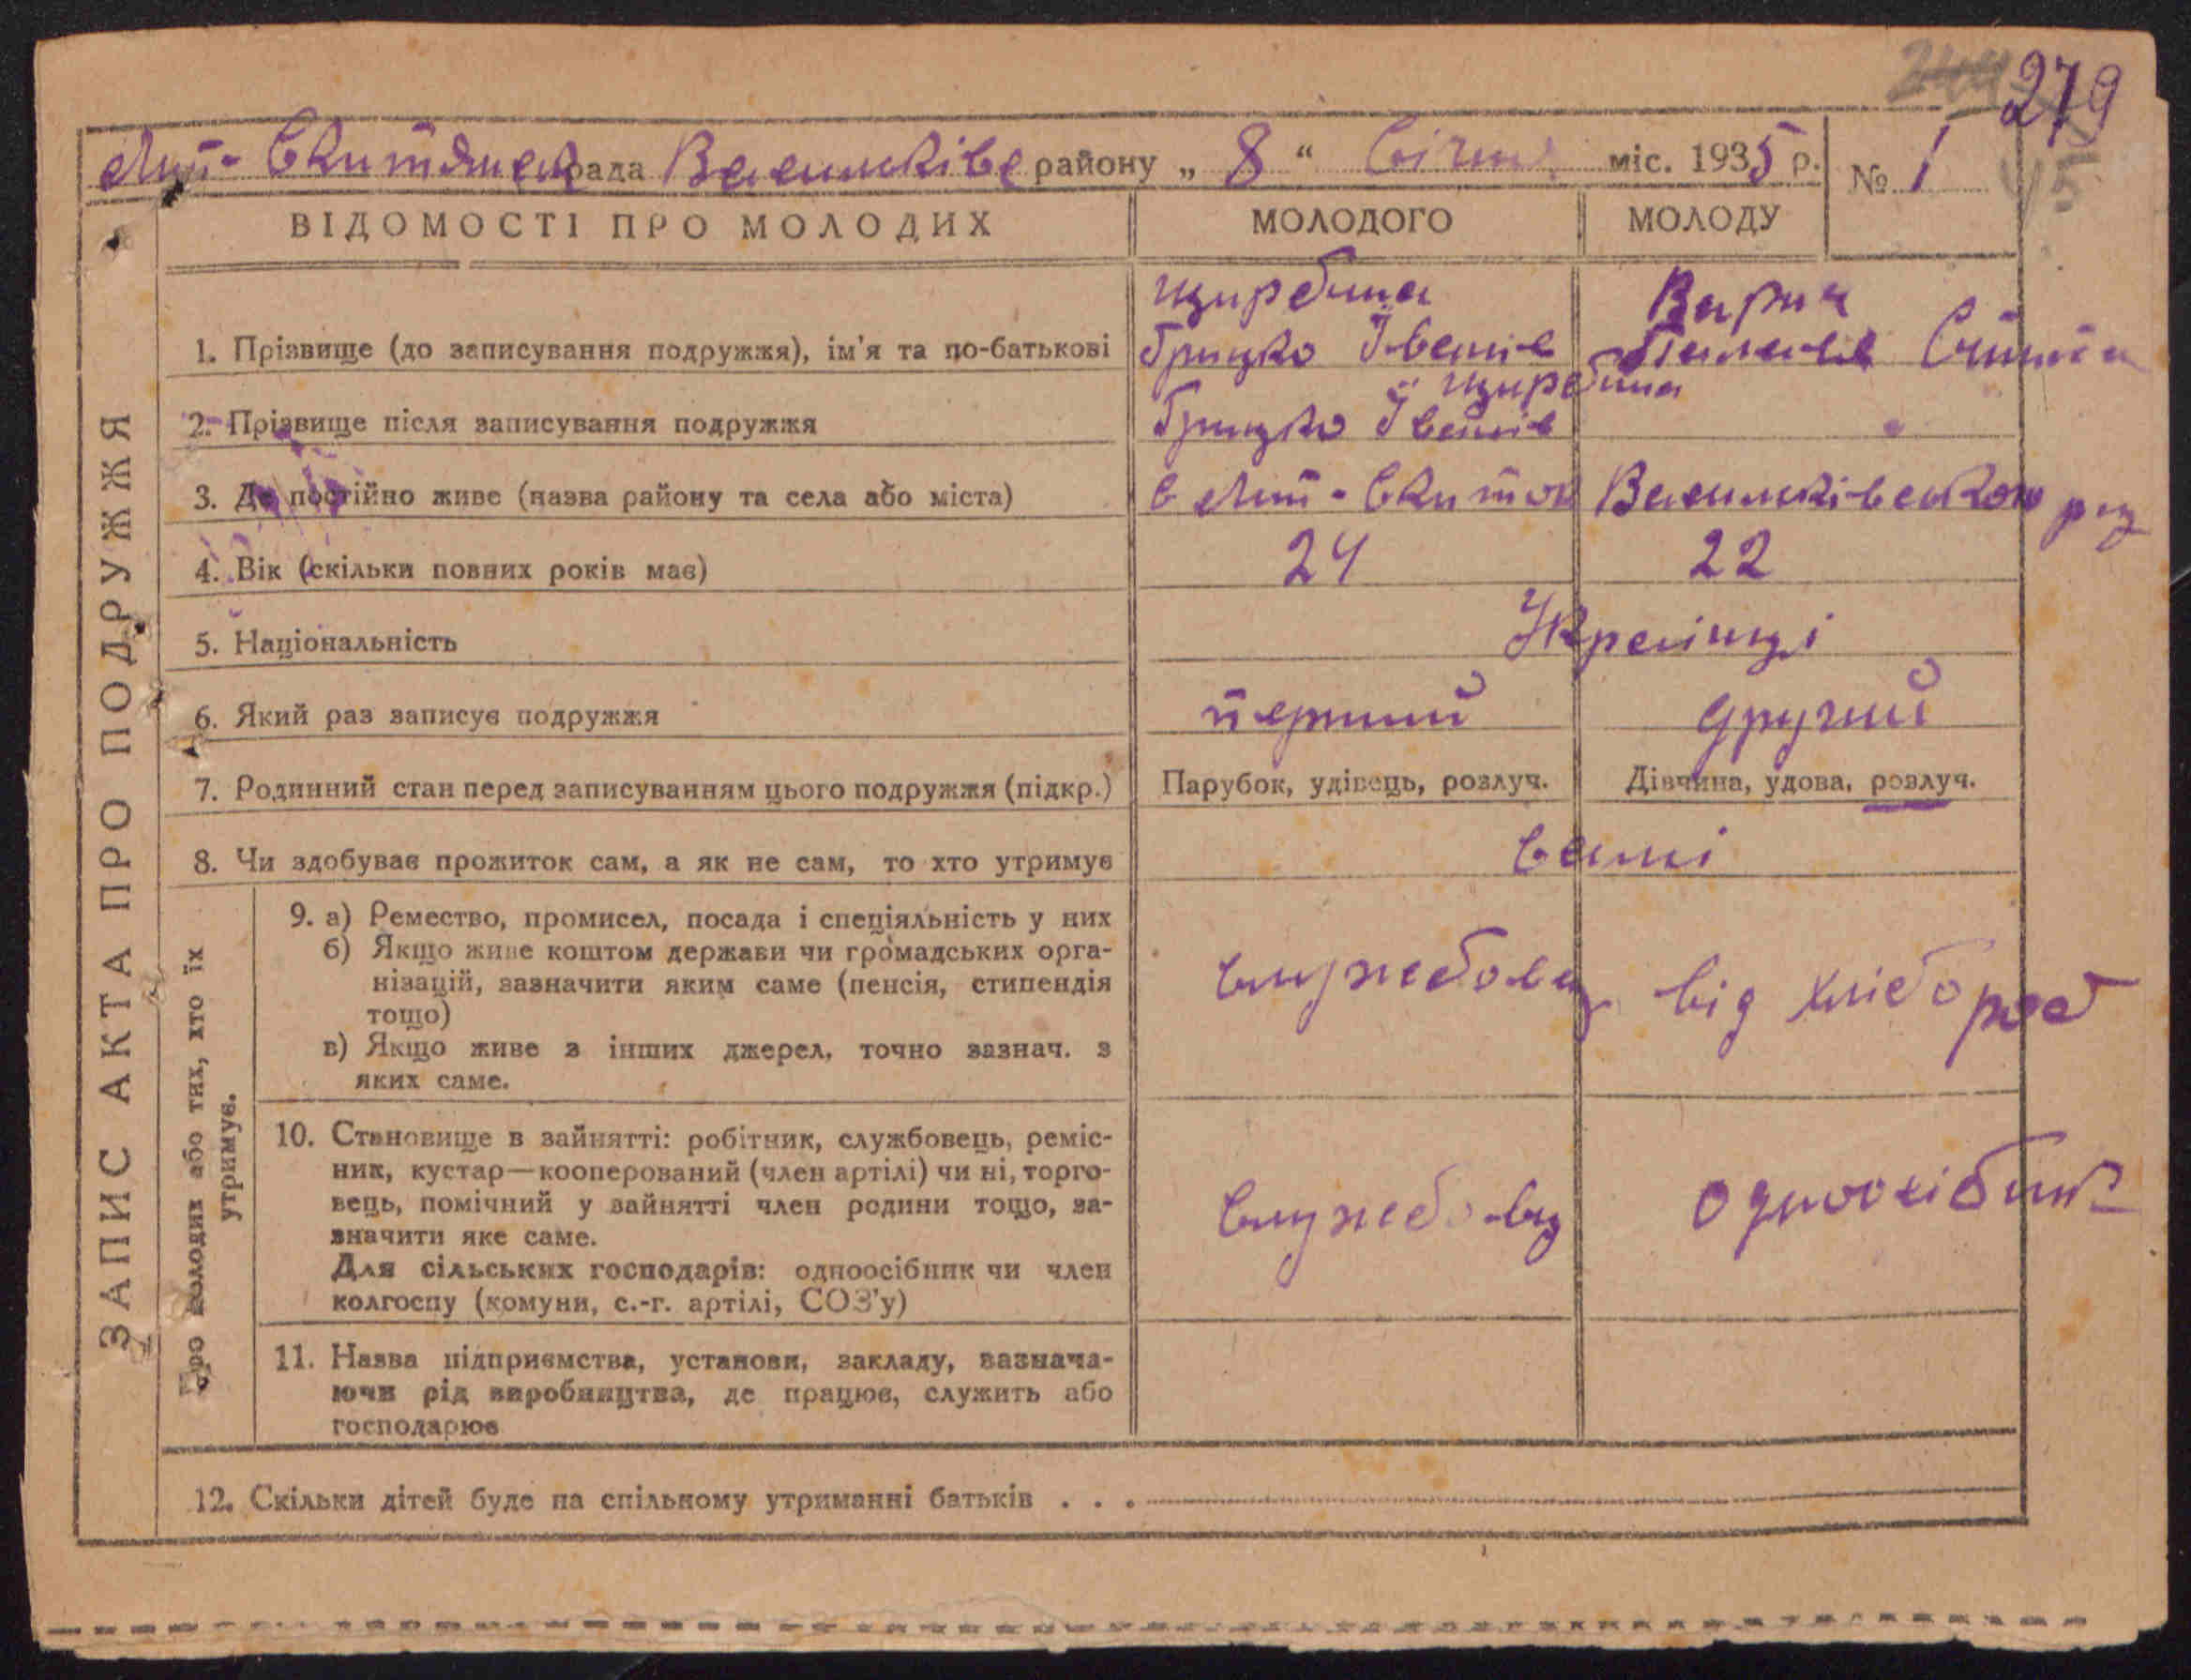 279
45
рада району „ 8 “ Січня міс. 1935 р. № 1
ЗАПИС АКТА ПРО ПОДРУЖЖЯ
ВІДОМОСТІ ПРО МОЛОДИХ МОЛОДОГО МОЛОДУ
щирбина
1. Прізвище (до записування подружжя), ім'я та по-батькові Грицко Іванів
щирбина
2. Прізвище після записування подружжя Грицко Іванів
3. Де постійно живе (назва району та села або міста) с Васильківського
4. Вік (скільки повних років має) 24 22
5. Національність Українці
6. Який раз записує подружжя перший другий
7. Родинний стан перед записуванням цього подружжя (підкр.) Парубок, удівець, розлуч. Дівчина, удова, розлуч.
8. Чи здобуває прожиток сам, а як не сам, то хто утримує самі
Про молодих або тих, хто їх
утримує.
9. а) Ремество, промисел, посада і спеціяльність у них
б) Якщо живе коштом держави чи громадських орга-
нізацій, зазначити яким саме (пенсія, стипендія
тощо)
в) Якщо живе з інших джерел, точно зазнач. з
яких саме.
службовец від хлібороб
10. Становище в зайнятті: робітник, службовець, реміс-
ник, кустар—кооперований (член артілі) чи ні, торго-
вець, помічний у зайнятті член родини тощо, за-
значити яке саме.
Для сільських господарів: одноосібник чи член
колгоспу (комуни, с.-г. артілі, СОЗ'у)
службовец одноосібник
11. Назва підприємства, установи, закладу, зазнача-
ючи рід виробництва, де працює, служить або
господарює
12. Скільки дітей буде на спільному утриманні батьків . . .